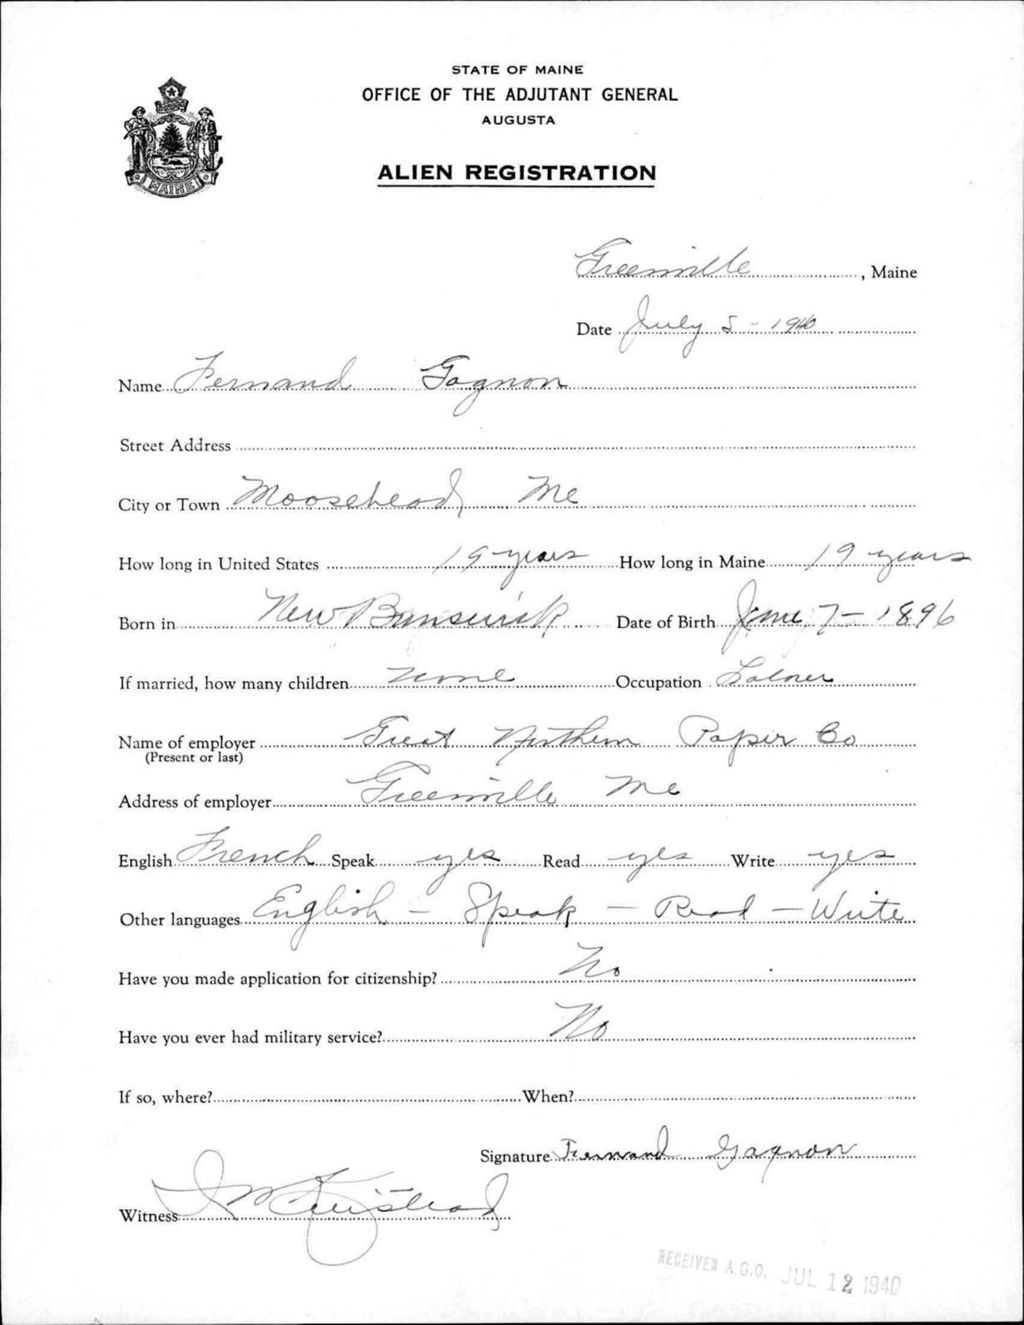 STATE OF MAINE
OFFICE OF THE ADJUTANT GENERAL
AUGUSTA
ALIEN REGISTRATION
MAINE
Greenville, Maine
Date July 5 - 1940
Name Fernand Gagnon
Street Address
City or Town Moosehead Me
How long in United States 19 years How long in Maine 19 years
Born in New Brunswick Date of Birth June 7 - 1896
If married, how many children None Occupation Laborer
Name of employer Great Northern Paper Co
(Present or last)
Address of employer Greenville Me
English French Speak yes Read yes Write yes
Other languages English - Speak - Read - Write
Have you made application for citizenship? No
Have you ever had military service? No
If so, where? When?
Signature Fernand Gagnon
Witness
RECEIVED A.G.O. JUL 12 1940